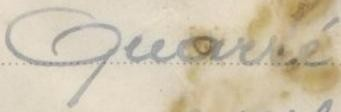 Quarré